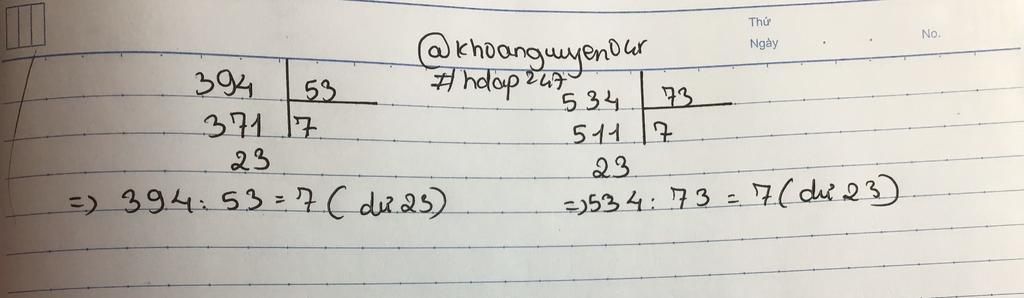 Thứ
Ngày . . No.
@khoanguyen04r
#hdap247
394 53
371 7
23
=> 394 : 53 = 7 ( dư 23)
534 73
511 7
23
=> 534 : 73 = 7 ( dư 23)